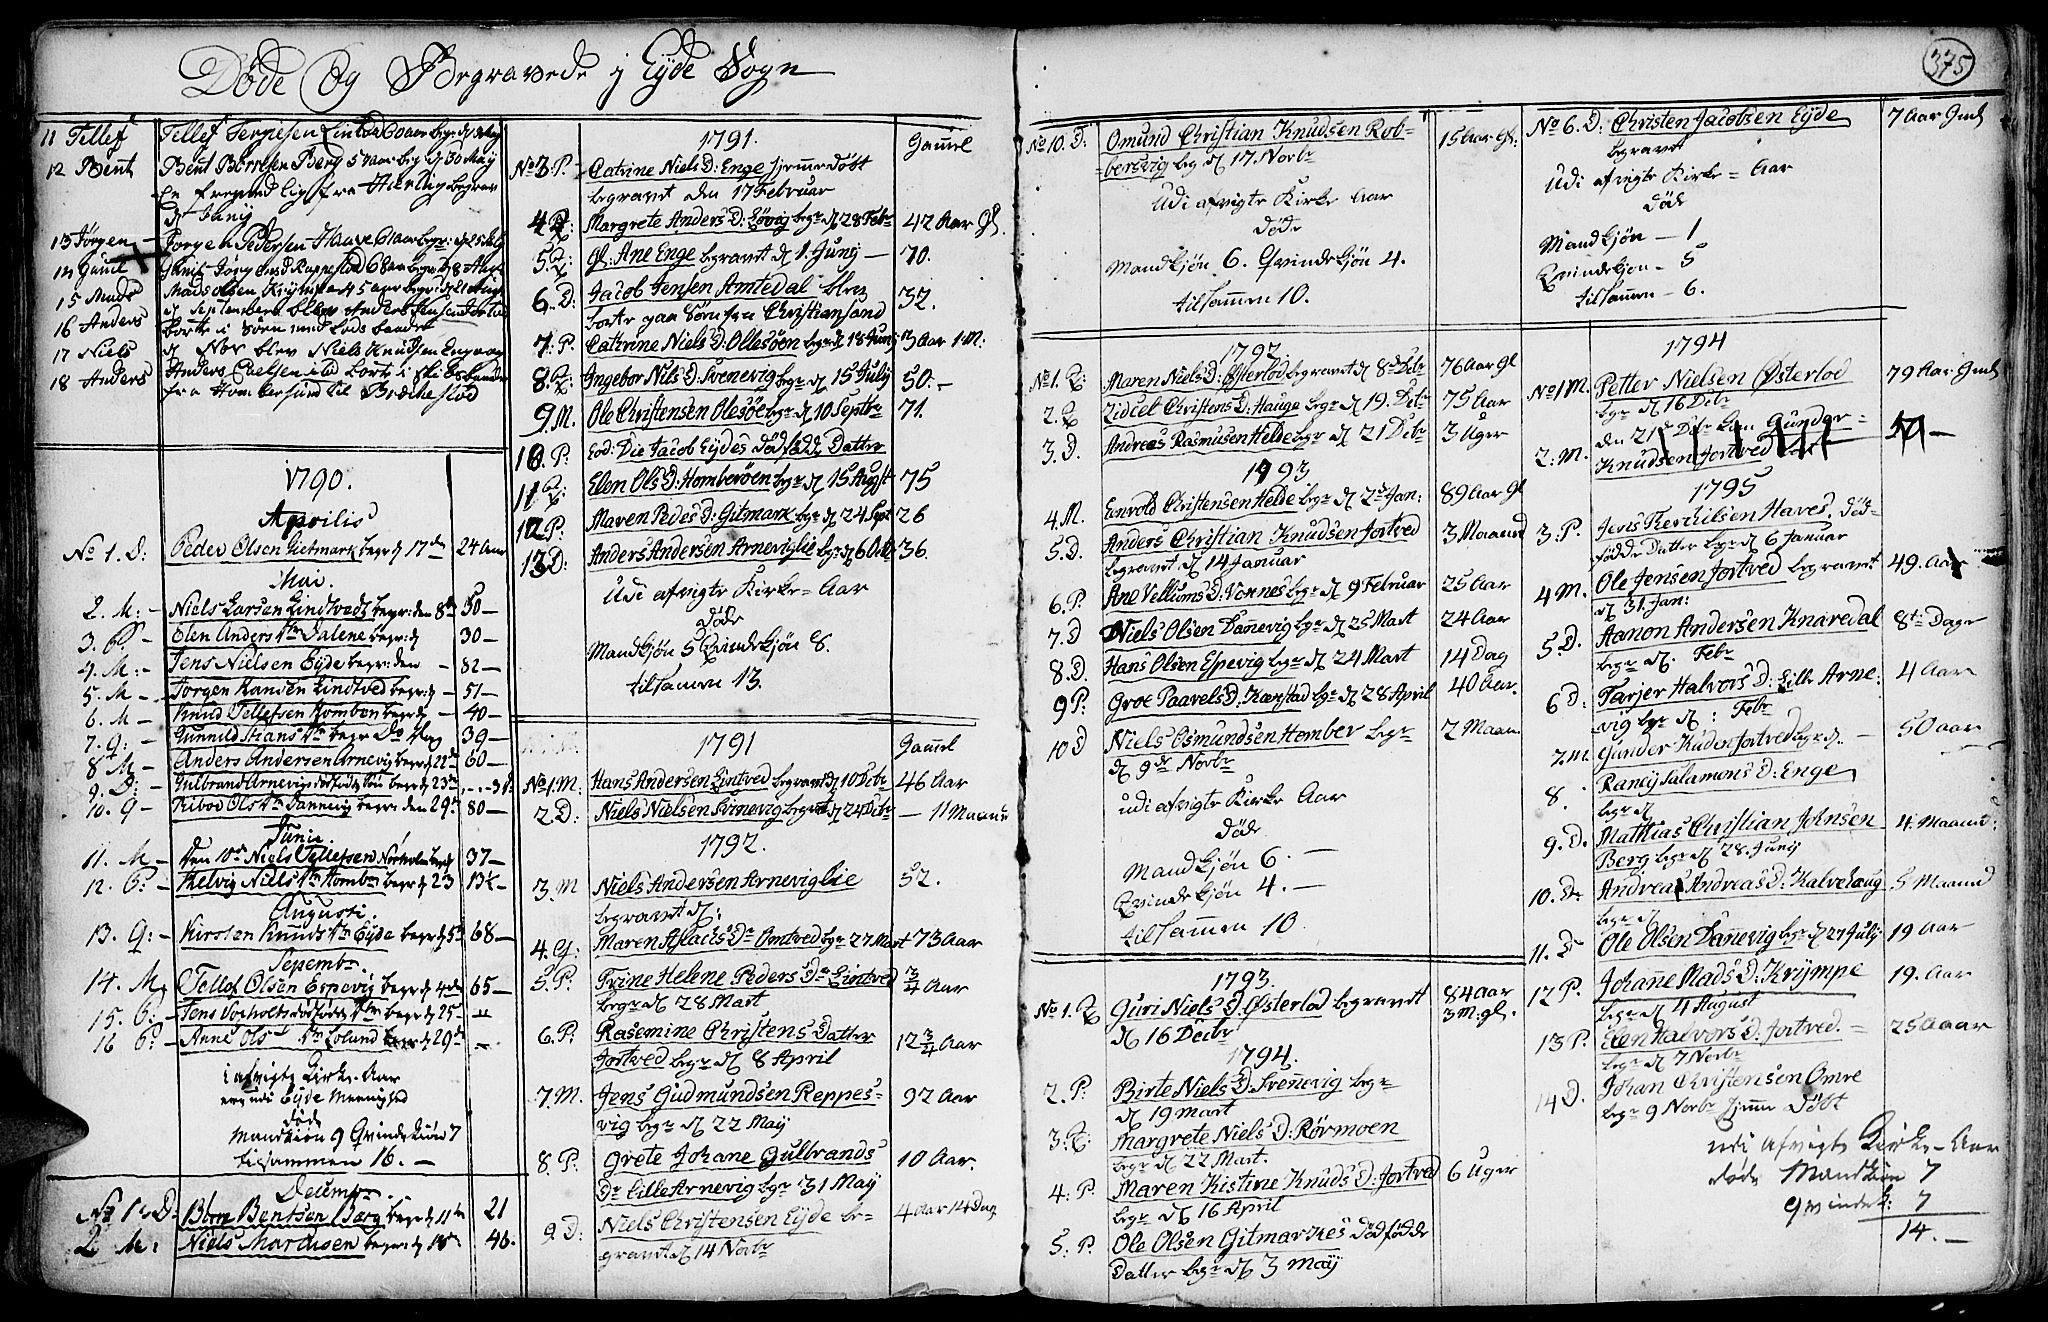 Døde Og Begravede j Eÿde Sogn
375
11 Tellef Tellef Terjesen
12 Bent Bent Børresen Berg
begr d 30 Maÿ
13 Jørgen Jørgen Pedersen Hauve
14 Gunil
15 Mads Mads Olsen
16 Anders
17 Niels d Nov blev Niels Knudsen
18 Anders Anders
1790.
Aprilis
No 1. D: Peder Olsen Gietmark begr d 17de 24 Aar
Mai.
2. M: Niels Larsen Lindtvedt begr: den 8de 50
3. P. Elen Anders Dtr Dalene begr: d 30
4. M. Jens Nielsen Eÿde begr: den 82
5. M Jørgen Hansen Lindtved begr: d 51
6. M Knud Tellefsen Hombor begr d 40
7. Q: Gunnild Hans Dtr begr 39
8 M Anders Andersen Arnevig begr: d 22de 60
9. D: Gulbrand Arnevigs begr: d 23de
10. Q Kibor Ols Dtr Dannevig begr: den 29de 80
Junii
11. M Den 10de Niels Tellefsen 37
12. P: Helvig Niels Dtr Hombor begr: d 23 13½
Augusti.
13. Q: Kirsten Knuds Dtr Eÿde begr: d 5te 68
Sepembr.
14. M. Tellef Olsen Espevig begr: d 4de 65
15. P: Jens begr: d 25
16 P: Anne Ols Dtr begr d 29de
i afvigte Kirke-Aar
Eÿde Meenighed
døde
Mandkiøn 9 Qvindekiøn 7
tilsammen 16.
Decembr.
No 1. D: Børre Bentsen Berg begr: d 11te 21
2. M: Niels begr: d 18de 46.
1791. Gammel
No 3. P. Catrine Niels D: Enge hjemmedøbt
begravet den 17 Februar
4. Q: Margrete Anders D: Løvig begr d 28 Febr 42 Aar Gl.
5. Q: gl: Ane Enge begravet d 1. Junÿ 70.
6. D: Jacob Jensen Amtedal blev 32.
borte paa Søen fra Christiansand
7. P: Catrine Niels D: Ollesøen begr d 18 Junÿ 3 Aar 1 M:
8. Q: Ingebor Nils D: Svenevig begr d 15 Julÿ 50.
9. M. Ole Christensen Olesøe begr d 10 Septbr 71.
10. P: Eod: Die Jacob Eÿdes dødfødde Datter
11 Q: Elen Ols D: Homborøen begr d 15 Augst 75
12. P: Maren Peders D: Gitmark begr d 24 Sept 26
13. D: Anders Andersen Arneviglie begr d 6 Octb 36.
Udi afvigte Kirke-Aar
Døde
Mandkjøn 5 Qvindekjøn 8.
tilsamen 13.
1791 Gammel
No 1. M. Hans Andersen Lintved begravet d 10 Decbr 46 Aar
2. D: Niels Nielsen Svinevig begravet d 24 Decbr 11 Maaned
1792.
3. M Niels Andersen Arneviglie 52.
begravet d:
4. Q: Maren Aslachs Dr Omtved begr 27 Mart 73 Aar
5. P: Trine Helene Peders Dr Lintved ¾ Aar
begr d 28 Mart
6. P: Rasemine Christens Datter 12 ¾ Aar
Jortved begr d 8 April
7. M. Jens Gudmundsen Reppes- 92 Aar
vig begr d 22 Maÿ
8. P: Grete Johane Gulbrands 10 Aar.
Dr Lille Arnevig begr 31 Maÿ
9. D: Niels Christensen Eÿde be- 4 Aar 14 Dag
gravet d 14 Novbr
No 10. D: Omund Christian Knudsen Rob- 15 Aar gl:
bersvig begr d 17. Novbr
Udi afvigte Kirke Aar
døde
Mandkjøn 6. Qvindekjøn 4.
tilsammen 10.
1792.
No 1. Q: Maren Niels D: Østerlod begravet d 8de Debr 76 Aar gl
2. Q Zidcel Christens D: Hauge begr d 19. Debr 75 Aar
3. D. Andreas Rasmusen Helde begr d 21 Debr 3 Uger
1793.
4. M. Envold Christensen Helde begr d 2de Jan: 89 Aar Gl
5. D. Anders Christian Knudsen Jortved 3 Maaned
begravet d 14 Januar
6. P. Ane Vellums D: Vonnes begr d 9 Februar 25 Aar
7. D Niels Olsen Dannevig begr d 25 Mart 24 Aar
8. D Hans Olsen Espevig begr d 24 Mart 14 Dag
9 P: Groe Paavels D: Kærstad begr d 28 April 40 Aar.
10 D Niels Osmundsen Homber begr 2 Maan
d 9de Novbr
udi afvigte Kirke Aar
Døde
Mandkjøn 6.
Qvindekjøn 4.
tilsammen 10.
1793.
No 1. Q Guri Niels D: Østerlod begravet 84 Aar
d 16 Decbr 3 M: gl.
1794.
2. P: Birte Niels D: Svennevig begr
d 19 Mart
3. Q: Margrete Niels D: Rörmoen
begr d 22 Mart.
4: P. Maren Kistine Knuds D: Jortved 6 Uger
begr d 16 April
5: P. Ole Olsen Gitmarkes dødfødde
Datter begr d 3 Maÿ
No 6. D: Christen Jacobsen Eÿde 7 Aar Gml
begravet
Udi afvigte Kirke-Aar
døde
Mandkjøn 1
Qvindekjøn 5
tilsamen 6.
1794
No 1 M. Petter Nielsen Østerlod 79 Aar Gml
begr d 16 Debr
den 21de Debr blev Gunder
2: M. Knudsen Jortved
1795
3: P. Jens Terchilsen Haves død-
fødde Datter begr d 6 Januar
4 M. Ole Jensen Jortved begravet 49. Aar
d 31. Jan:
5. D. Aanon Andersen Knaredal 8te Dage
begr d. Febr
6 D. Tarjer Halvors D: Lille Arne: 4 Aar
vig begr d: Febr
7. M. Gunder begr d. 50 Aar
8. Rancÿ Salamons D: Enge
begr d
9. D. Mathias Christian Johnsen 4. Maaned:
Berg begr d 28. Junÿ
10. D Andreas Andreas D: Kalvehaug 5 Maaned
begr d
11. D Ole Olsen Dannevig begr d 27 Julÿ 19 Aar
12 P. Johanne Mads D: Krÿmpe 19. Aar
begr d 4 August
13 P. Elen Halvors D: Jortved. 25 Aaar
begr d 7 Novbr
14 D. Johan Christensen Omre
begr 9 Novbr hjemme Døbt
udi afvigte Kirke-Aar
døde Mandkiøn 7
Qvindek: 7
14.